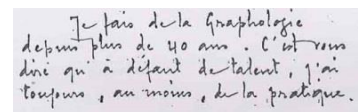 Je fais de la Graphologie
depuis plus de 40 ans. C'est vous
dire qu'à défaut de talent, j'ai
toujours, au moins, de la pratique.